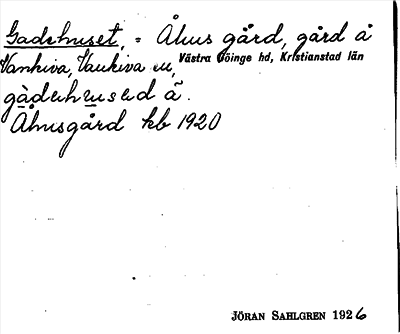 Gadehuset, = Åhus gård, gård å
Vankiva, Vankiva sn, Västra Göinge hd, Kristianstad län
gàdehused ã.
Åhusgård kb 1920
JÖRAN SAHLGREN 1926